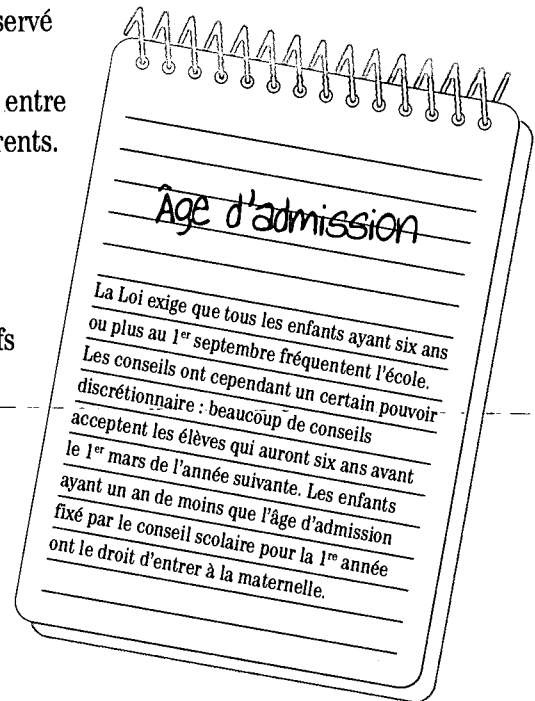 servé
entre
rents.
fs
Âge d'admission
La Loi exige que tous les enfants ayant six ans
ou plus au 1er septembre fréquentent l'école.
Les conseils ont cependant un certain pouvoir
discrétionnaire : beaucoup de conseils
acceptent les élèves qui auront six ans avant
le 1er mars de l'année suivante. Les enfants
ayant un an de moins que l'âge d'admission
fixé par le conseil scolaire pour la 1re année
ont le droit d'entrer à la maternelle.